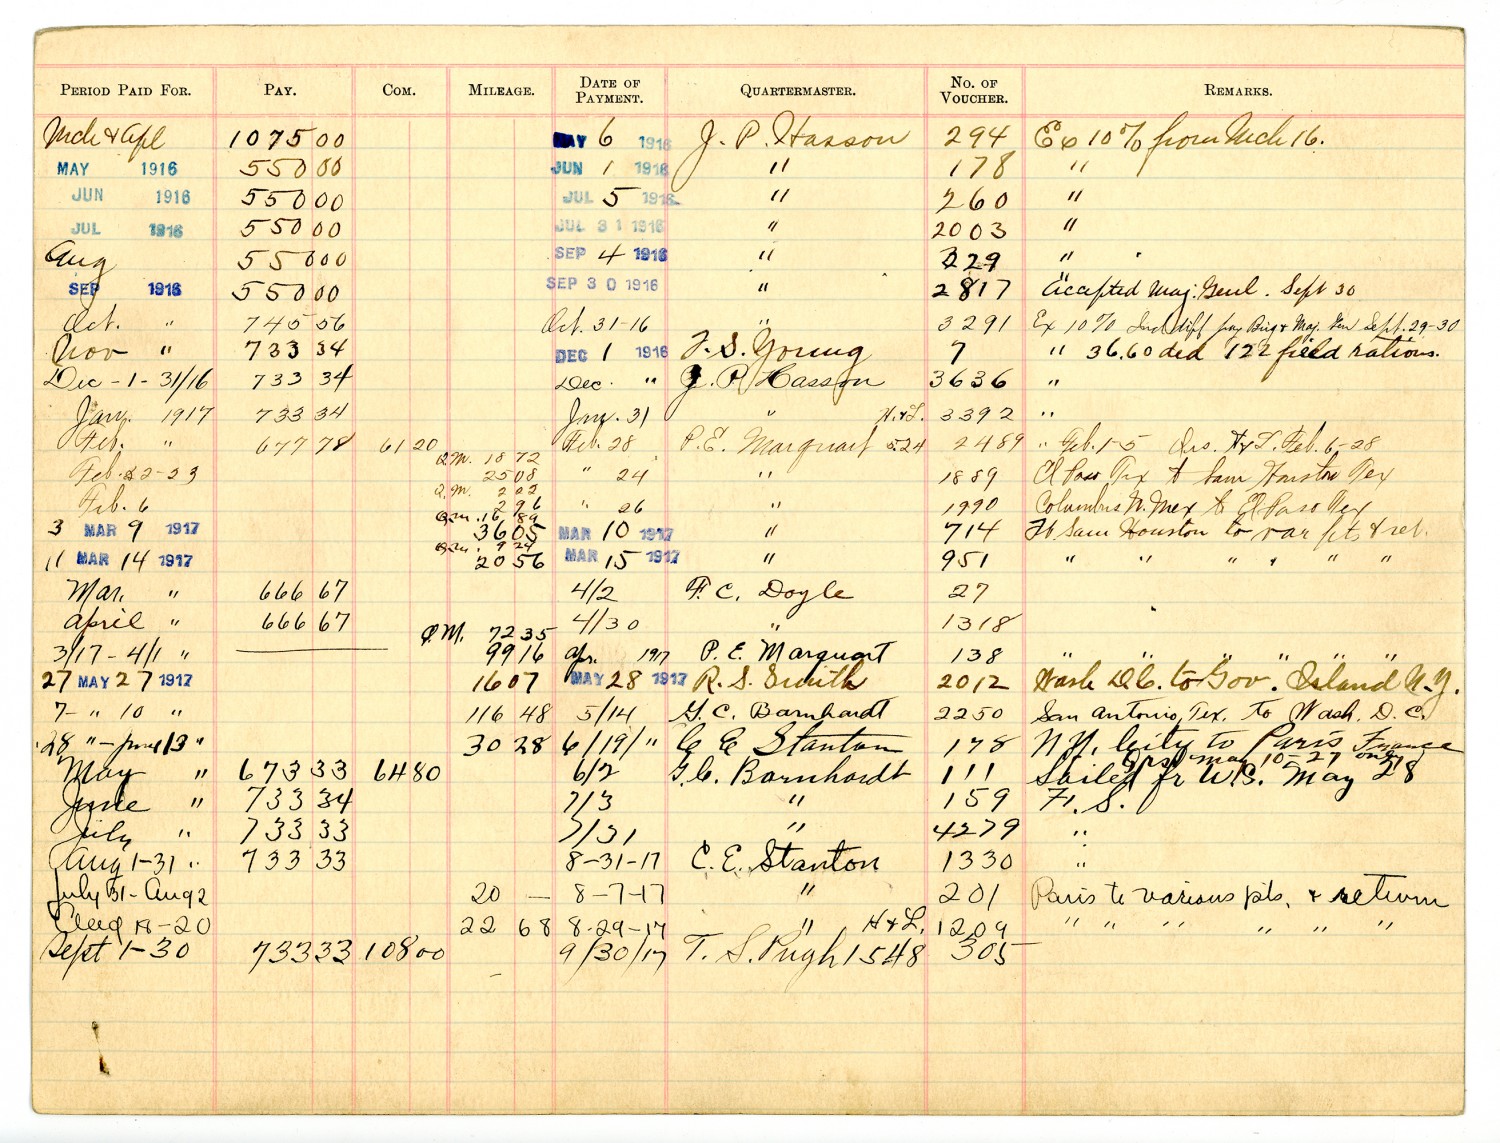 PERIOD PAID FOR. PAY. COM. MILEAGE. DATE OF PAYMENT. QUARTERMASTER. NO. OF VOUCHER. REMARKS.
Mch & Apl 1075 00 MAY 6 1916 J. P. Hasson 294 Ex 10% from Mch 16.
MAY 1916 550 00 JUN 1 1916 " 178 "
JUN 1916 550 00 JUL 5 1916 " 260 "
JUL 1916 550 00 JUL 31 1916 " 2003 "
Aug 550 00 SEP 4 1916 " 229 "
SEP 1916 550 00 SEP 30 1916 " 2817 " Accepted Maj. Genl. Sept 30
Oct. " 745 56 Oct. 31-16 " 3291 Ex 10% Incl diff pay Brig & Maj. Gen Sept. 29-30
Nov " 733 34 DEC 1 1916 F. S. Young 7 " 36.60 ded 122 field rations.
Dec - 1 - 31/16 733 34 Dec. " J. P. Hasson 3636 "
Jan. 1917 733 34 Jan. 31 " H & L. 3392 "
Feb. " 677 78 61 20 Feb. 28 P. E. Marquart 524 2489 " Feb. 1-5 Qrs. H & L. Feb. 6-28
Feb. 22-23 Q.M. 18 72 25 08 " 24 " 1889 El Paso Tex to Sam Houston Tex
Feb. 6 Q.M. 2 22 2 96 " 26 " 1990 Columbus N. Mex to El Paso Tex
3 MAR 9 1917 Q.M. 16 89 36 05 MAR 10 1917 " 714 Ft. Sam Houston to var pts & ret.
11 MAR 14 1917 Q.M. 9 24 20 56 MAR 15 1917 " 951 " " " " " "
Mar. " 666 67 4/2 F. C. Doyle 27
April " 666 67 4/30 " 1318
3/17 - 4/1 " Q.M. 72 35 99 16 Apr. 1917 P. E. Marquart 138 " " " " " "
27 MAY 27 1917 16 07 MAY 28 1917 R. S. Smith 2012 Wash D.C. to Gov. Island N.Y.
7 - " 10 " 116 48 5/14 G. C. Barnhardt 2250 San Antonio, Tex. to Wash. D. C.
28 " - June 13 " 30 28 6/19/" C E Stanton 178 N.Y. City to Paris France
Qrs. May 10-27 only
May " 673 33 64 80 6/2 G. C. Barnhardt 111 Sailed fr U.S. May 28
June " 733 34 7/3 " 159 F. S.
July " 733 33 7/31 " 4279 "
Aug 1-31 " 733 33 8-31-17 C. E. Stanton 1330 "
July 31 - Aug 2 20 — 8-7-17 " 201 Paris to various pts. & return
Aug 18-20 22 68 8-29-17 " H & L. 1209 " " " " " "
Sept 1-30 733 33 108 00 9/30/17 T. S. Pugh 1548 305